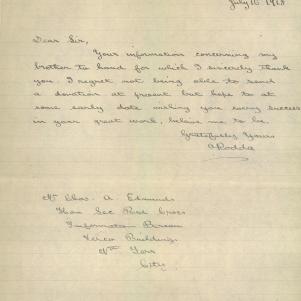 July 10 1918
Dear Sir,
Your information concerning my
brother to hand for which I sincerely thank
you. I regret not being able to send
a donation at present but hope to at
some early date wishing you every success
in your great work, believe me to be.
Gratefully Yours
A Rodda
Mr Chas. A. Edmunds
Hon Sec Red Cross
Information Bureau
Verco Buildings
Nth Terr
City.